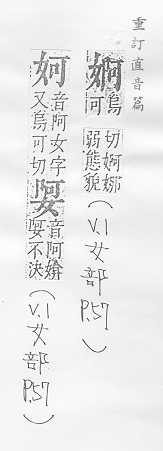 重訂直音篇
婀烏可切婀娜弱態貌(V.1女部P.57)
妸音阿女字又烏可切娿音阿媕娿不決(V.1女部P.57)